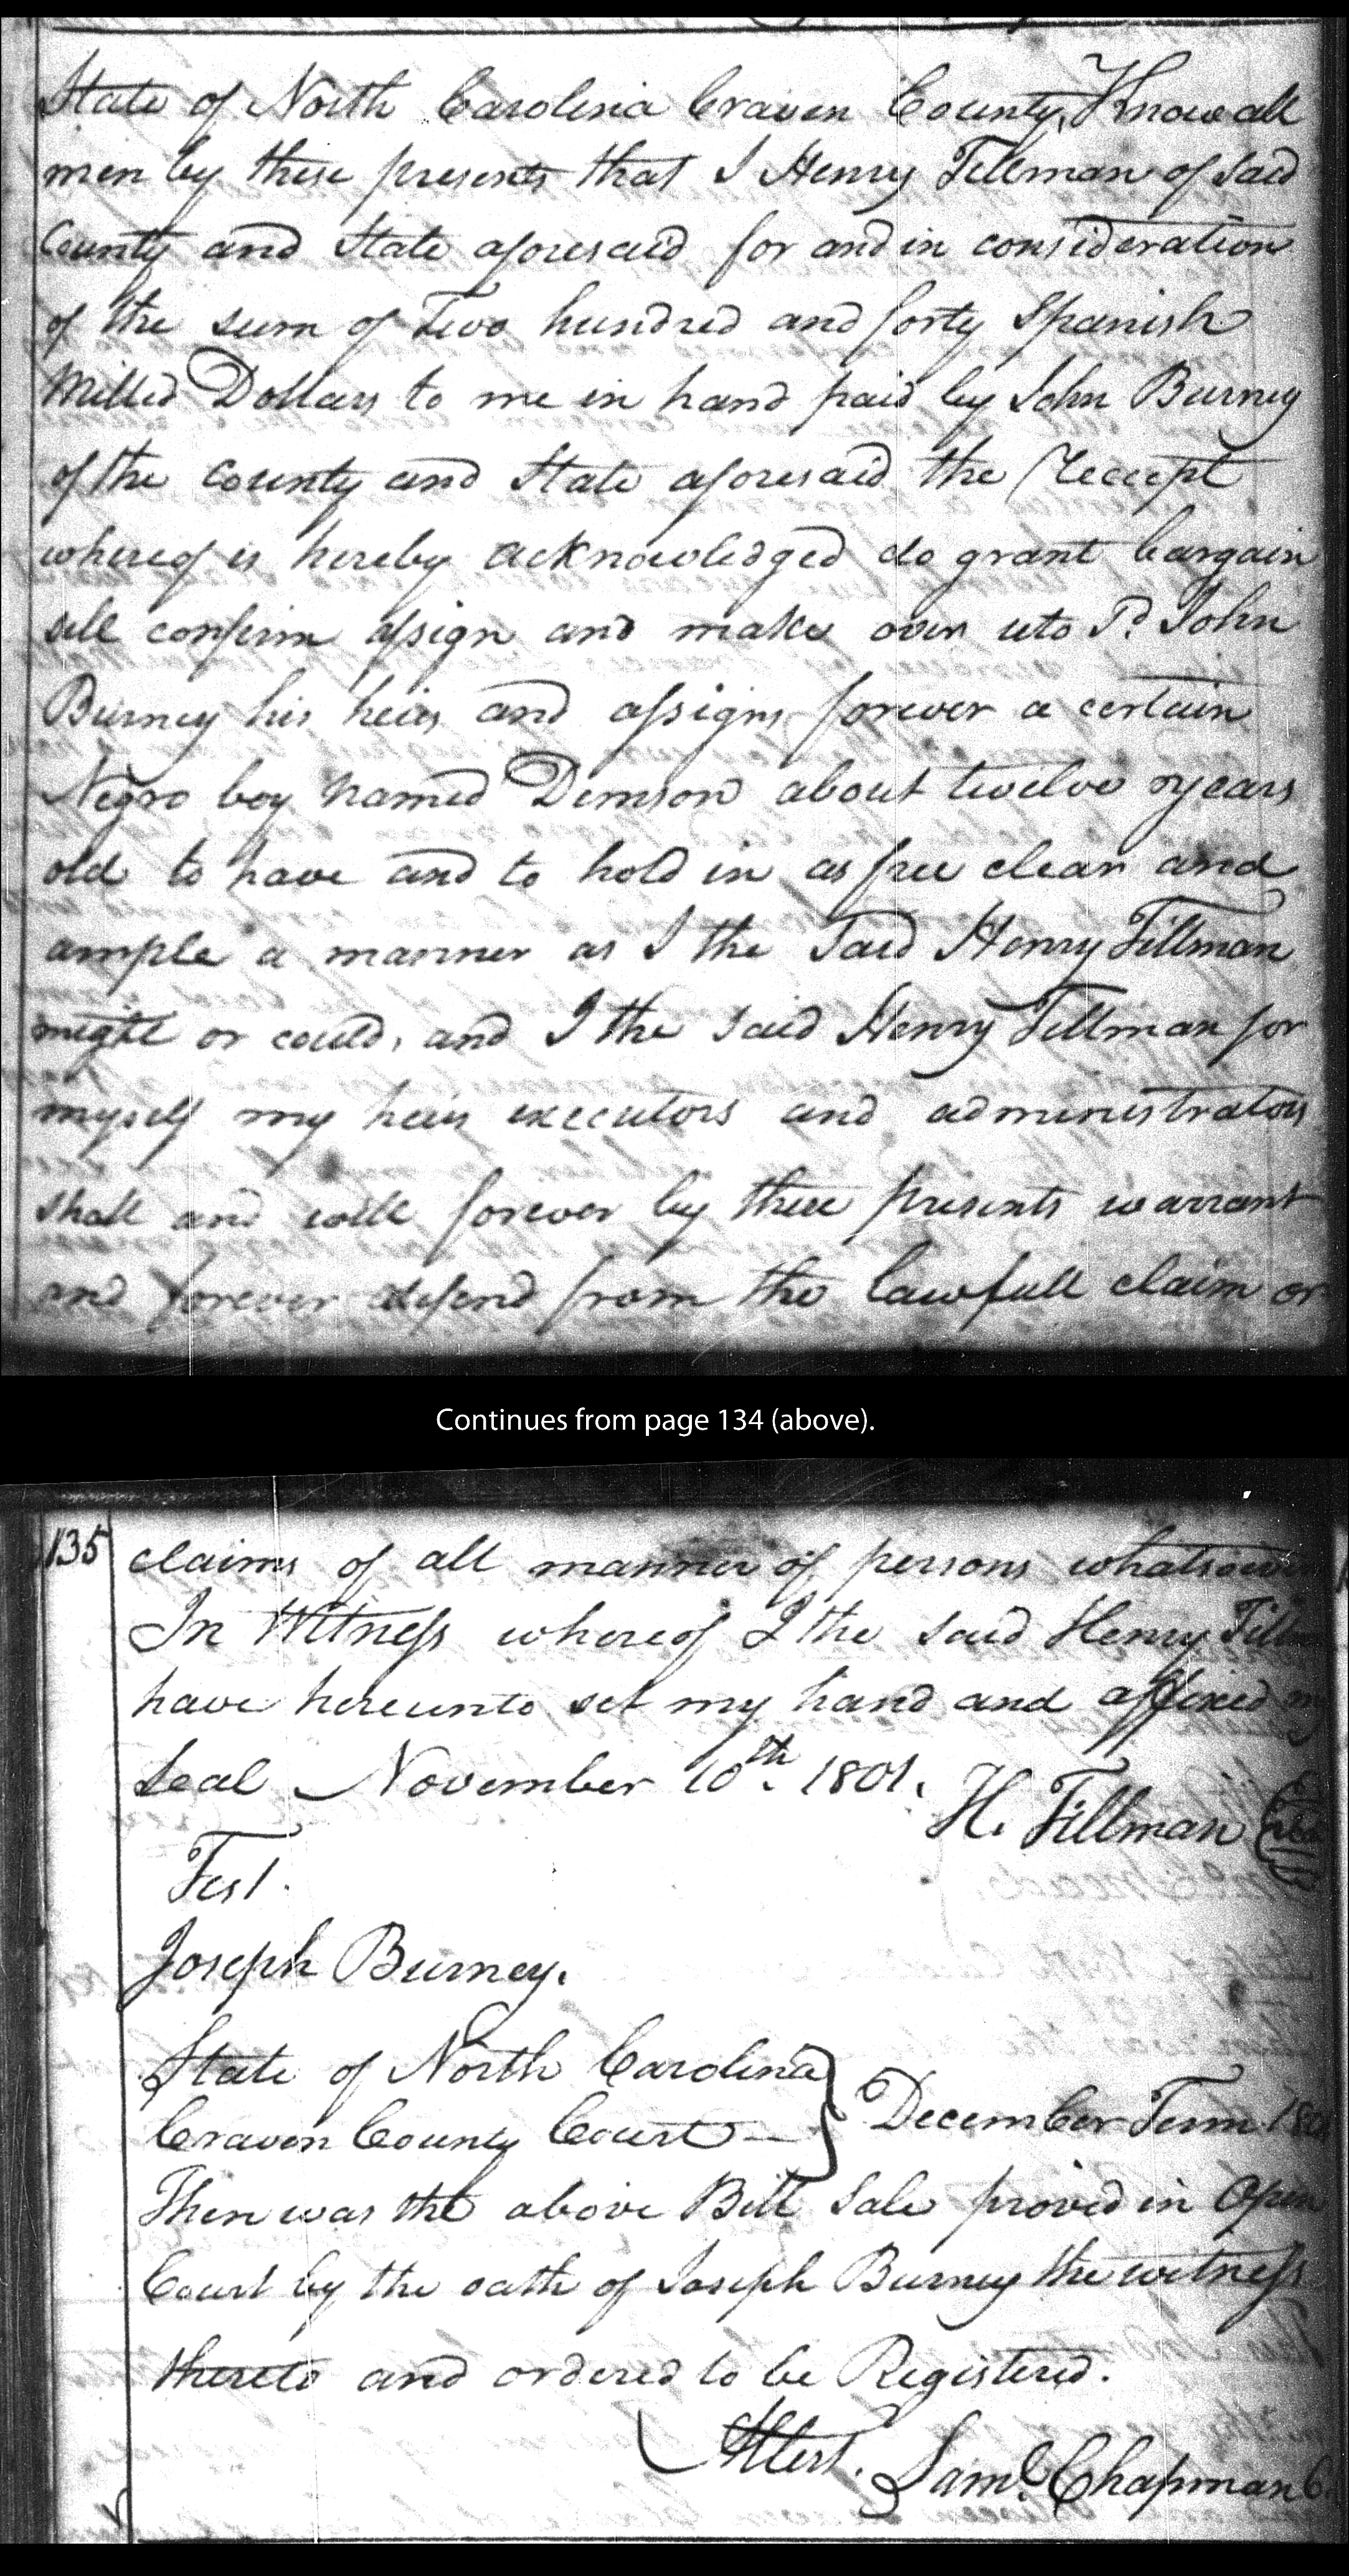 State of North Carolina Craven County, Know all
men by these presents that I Henry Tillman of said
County and State aforesaid for and in consideration
of the sum of Two hundred and forty Spanish
Milled Dollars to me in hand paid by John Burney
of the County and State aforesaid the Receipt
whereof is hereby acknowledged do grant bargain
sell confirm assign and make over uto Sd. John
Burney his heirs and assigns forever a certain
Negro boy named Demson about twelve years
old to have and to hold in as free clear and
ample a manner as I the said Henry Tillman
might or could, and I the said Henry Tillman for
myself my heirs executors and administrators
shall and will forever by these presents warrant
and forever defend from the lawfull claim or
Continues from page 134 (above).
135 claims of all manner of persons
In Witness whereof I the said Henry
have hereunto set my hand and affixed my
Seal November 10th. 1801. H. Tillman
Test.
Joseph Burney.
State of North Carolina
Craven County Court December Term
Then was the above Bill Sale proved in Open
Court by the oath of Joseph Burney the witness
thereto and ordered to be Registered.
Attest. Saml. Chapman